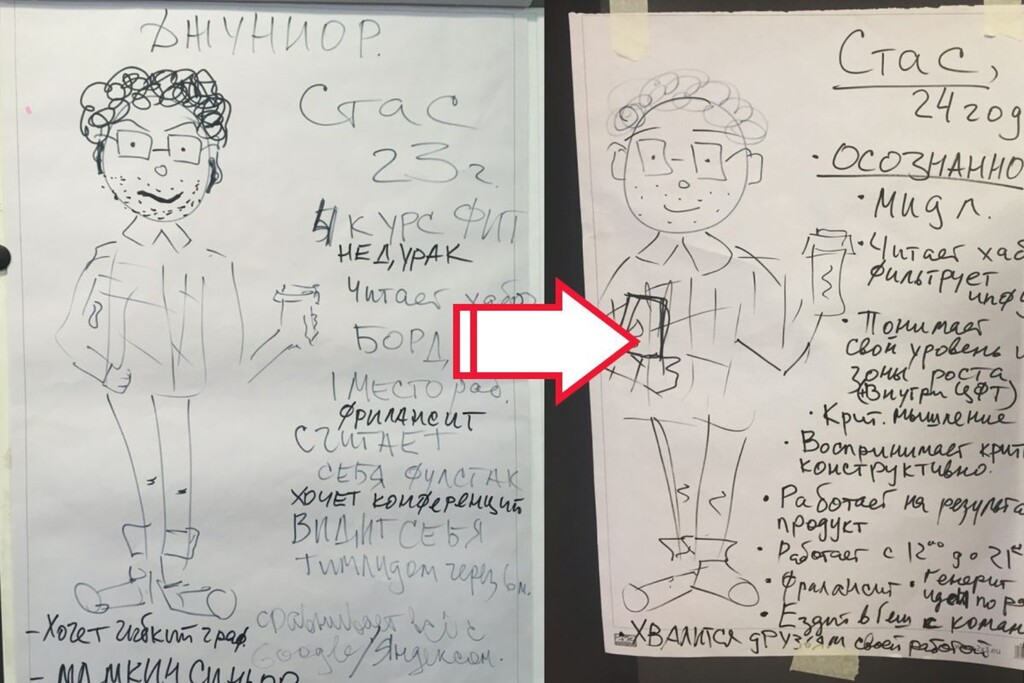 ДЖУНИОР.
Стас
23г.
4 КУРС ФИТ
НЕДУРАК
Читает хабр
БОРД,
1 МЕСТО раб.
ФРИЛАНСИТ
СЧИТАЕТ
СЕБЯ ФУЛСТАК
ХОЧЕТ КОНФЕРЕНЦИЙ
ВИДИТ СЕБЯ
ТИМЛИДОМ через 6 м.
сравнивает всё с
Google/Яндексом.
- Хочет гибкий граф
- МАМКИН СИНЬОР
Стас,
24 год
• ОСОЗНАННО
• МИДЛ.
• Читает хаб
фильтрует
инфу
• Понимает
свой уровень и
зоны роста
(внутри ЦФТ)
• Крит. мышление
• Воспринимает крит
конструктивно.
• Работает на результа
продукт
• Работает с 12⁰⁰ до 21
• Фрилансит • Генерит
идеи по ра
• Ездит в Геш с коман
ХВАЛИТСЯ друзьям своей работой